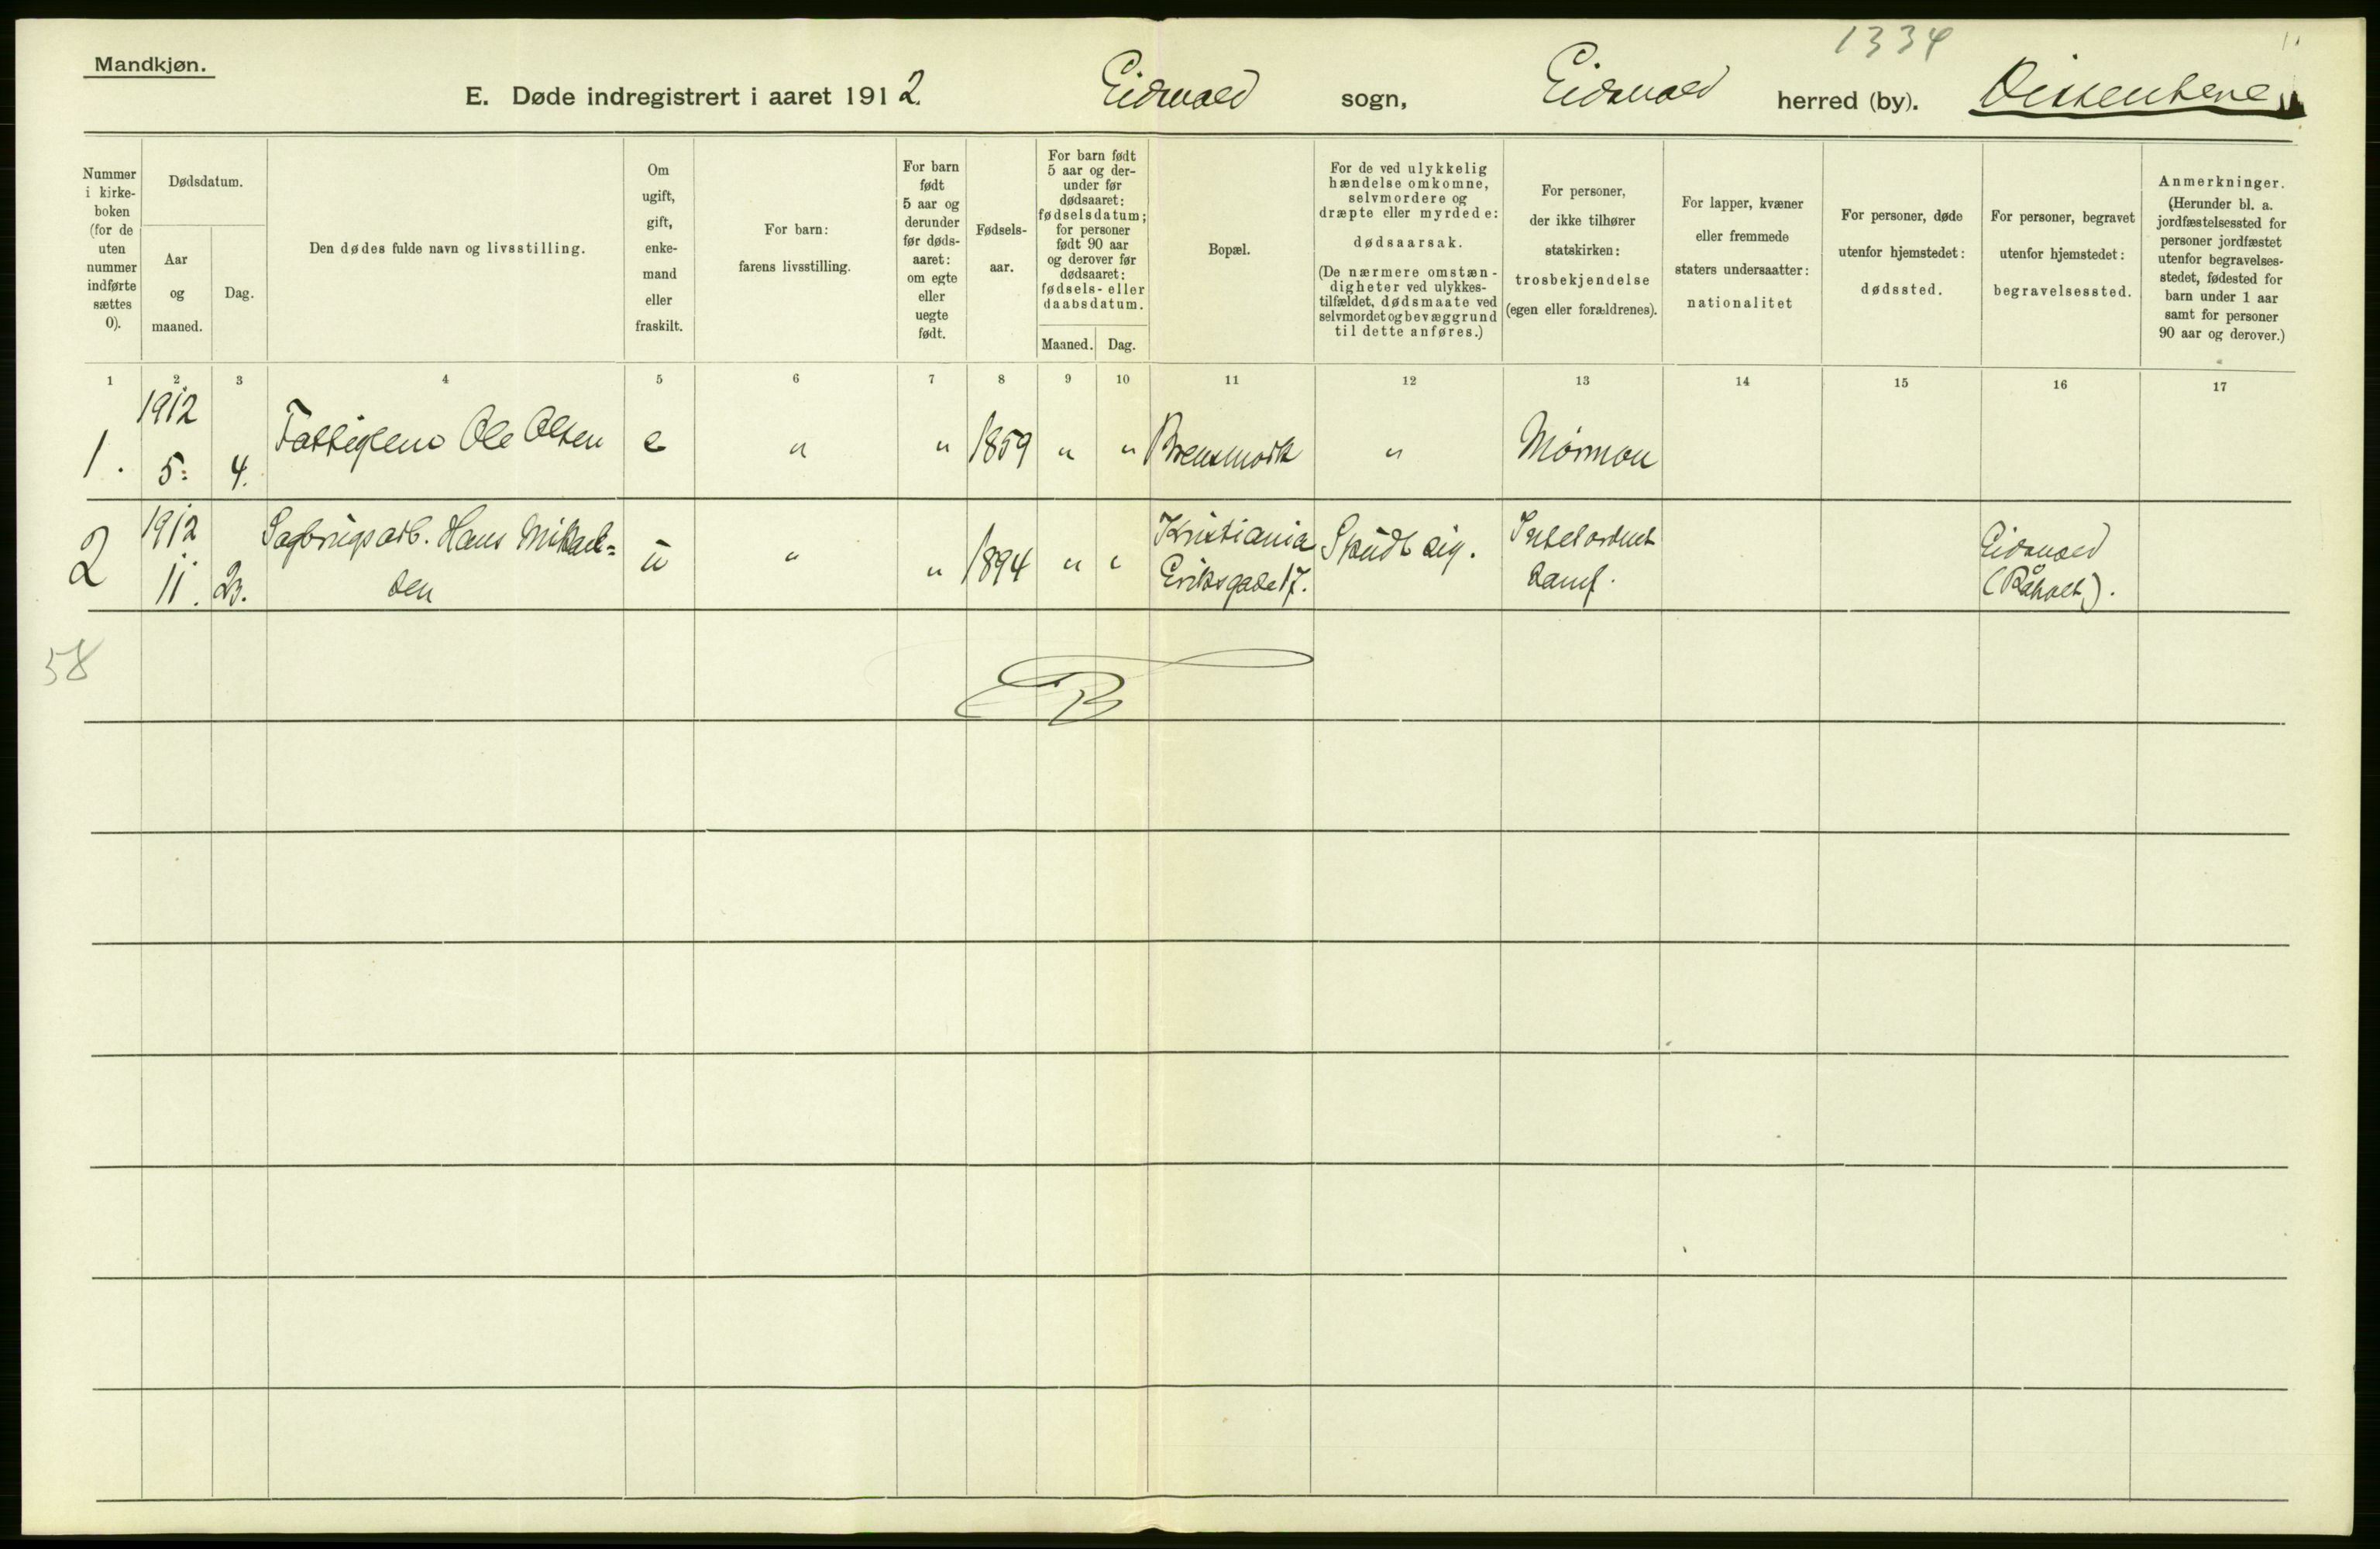 1334
Mandkjøn.
E. Døde indregistrert i aaret 1912. Eidsvold sogn, Eidsvold herred (by). Dissentere
Nummer
i kirke-
boken
(for de
uten
nummer
indførte
sættes
0).
Dødsdatum.
Aar
og
maaned.
Dag.
Den dødes fulde navn og livsstilling.
Om
ugift,
gift,
enke-
mand
eller
fraskilt.
For barn:
farens livsstilling.
For barn
født
5 aar og
derunder
før døds-
aaret:
om egte
eller
uegte
født.
Fødsels-
aar.
For barn født
5 aar og der-
under før
dødsaaret:
fødselsdatum;
for personer
født 90 aar
og derover før
dødsaaret:
fødsels- eller
daabsdatum.
Maaned. Dag.
Bopæl.
For de ved ulykkelig
hændelse omkomne,
selvmordere og
dræpte eller myrdede:
dødsaarsak.
(De nærmere omstæn-
digheter ved ulykkes-
tilfældet, dødsmaate ved
selvmordet og bevæggrund
til dette anføres.)
For personer,
der ikke tilhører
statskirken:
trosbekjendelse
(egen eller forældrenes).
For lapper, kvæner
eller fremmede
staters undersaatter:
nationalitet
For personer, døde
utenfor hjemstedet:
dødssted.
For personer, begravet
utenfor hjemstedet:
begravelsessted.
Anmerkninger.
(Herunder bl. a.
jordfæstelsessted for
personer jordfæstet
utenfor begravelses-
stedet, fødested for
barn under 1 aar
samt for personer
90 aar og derover.)
1 2 3 4 5 6 7 8 9 10 11 12 13 14 15 16 17
1912
1. 5. 4. Fattiglem Ole Olsen e " " 1859 " " " Mormon
1912 Sagbrugsarb. Hans Mikael= Kristiania Skudt sig. Eidsvold
2 11. 23. sen u " " 1894 " " Eriksgade 17. samf. (Råholt).
58